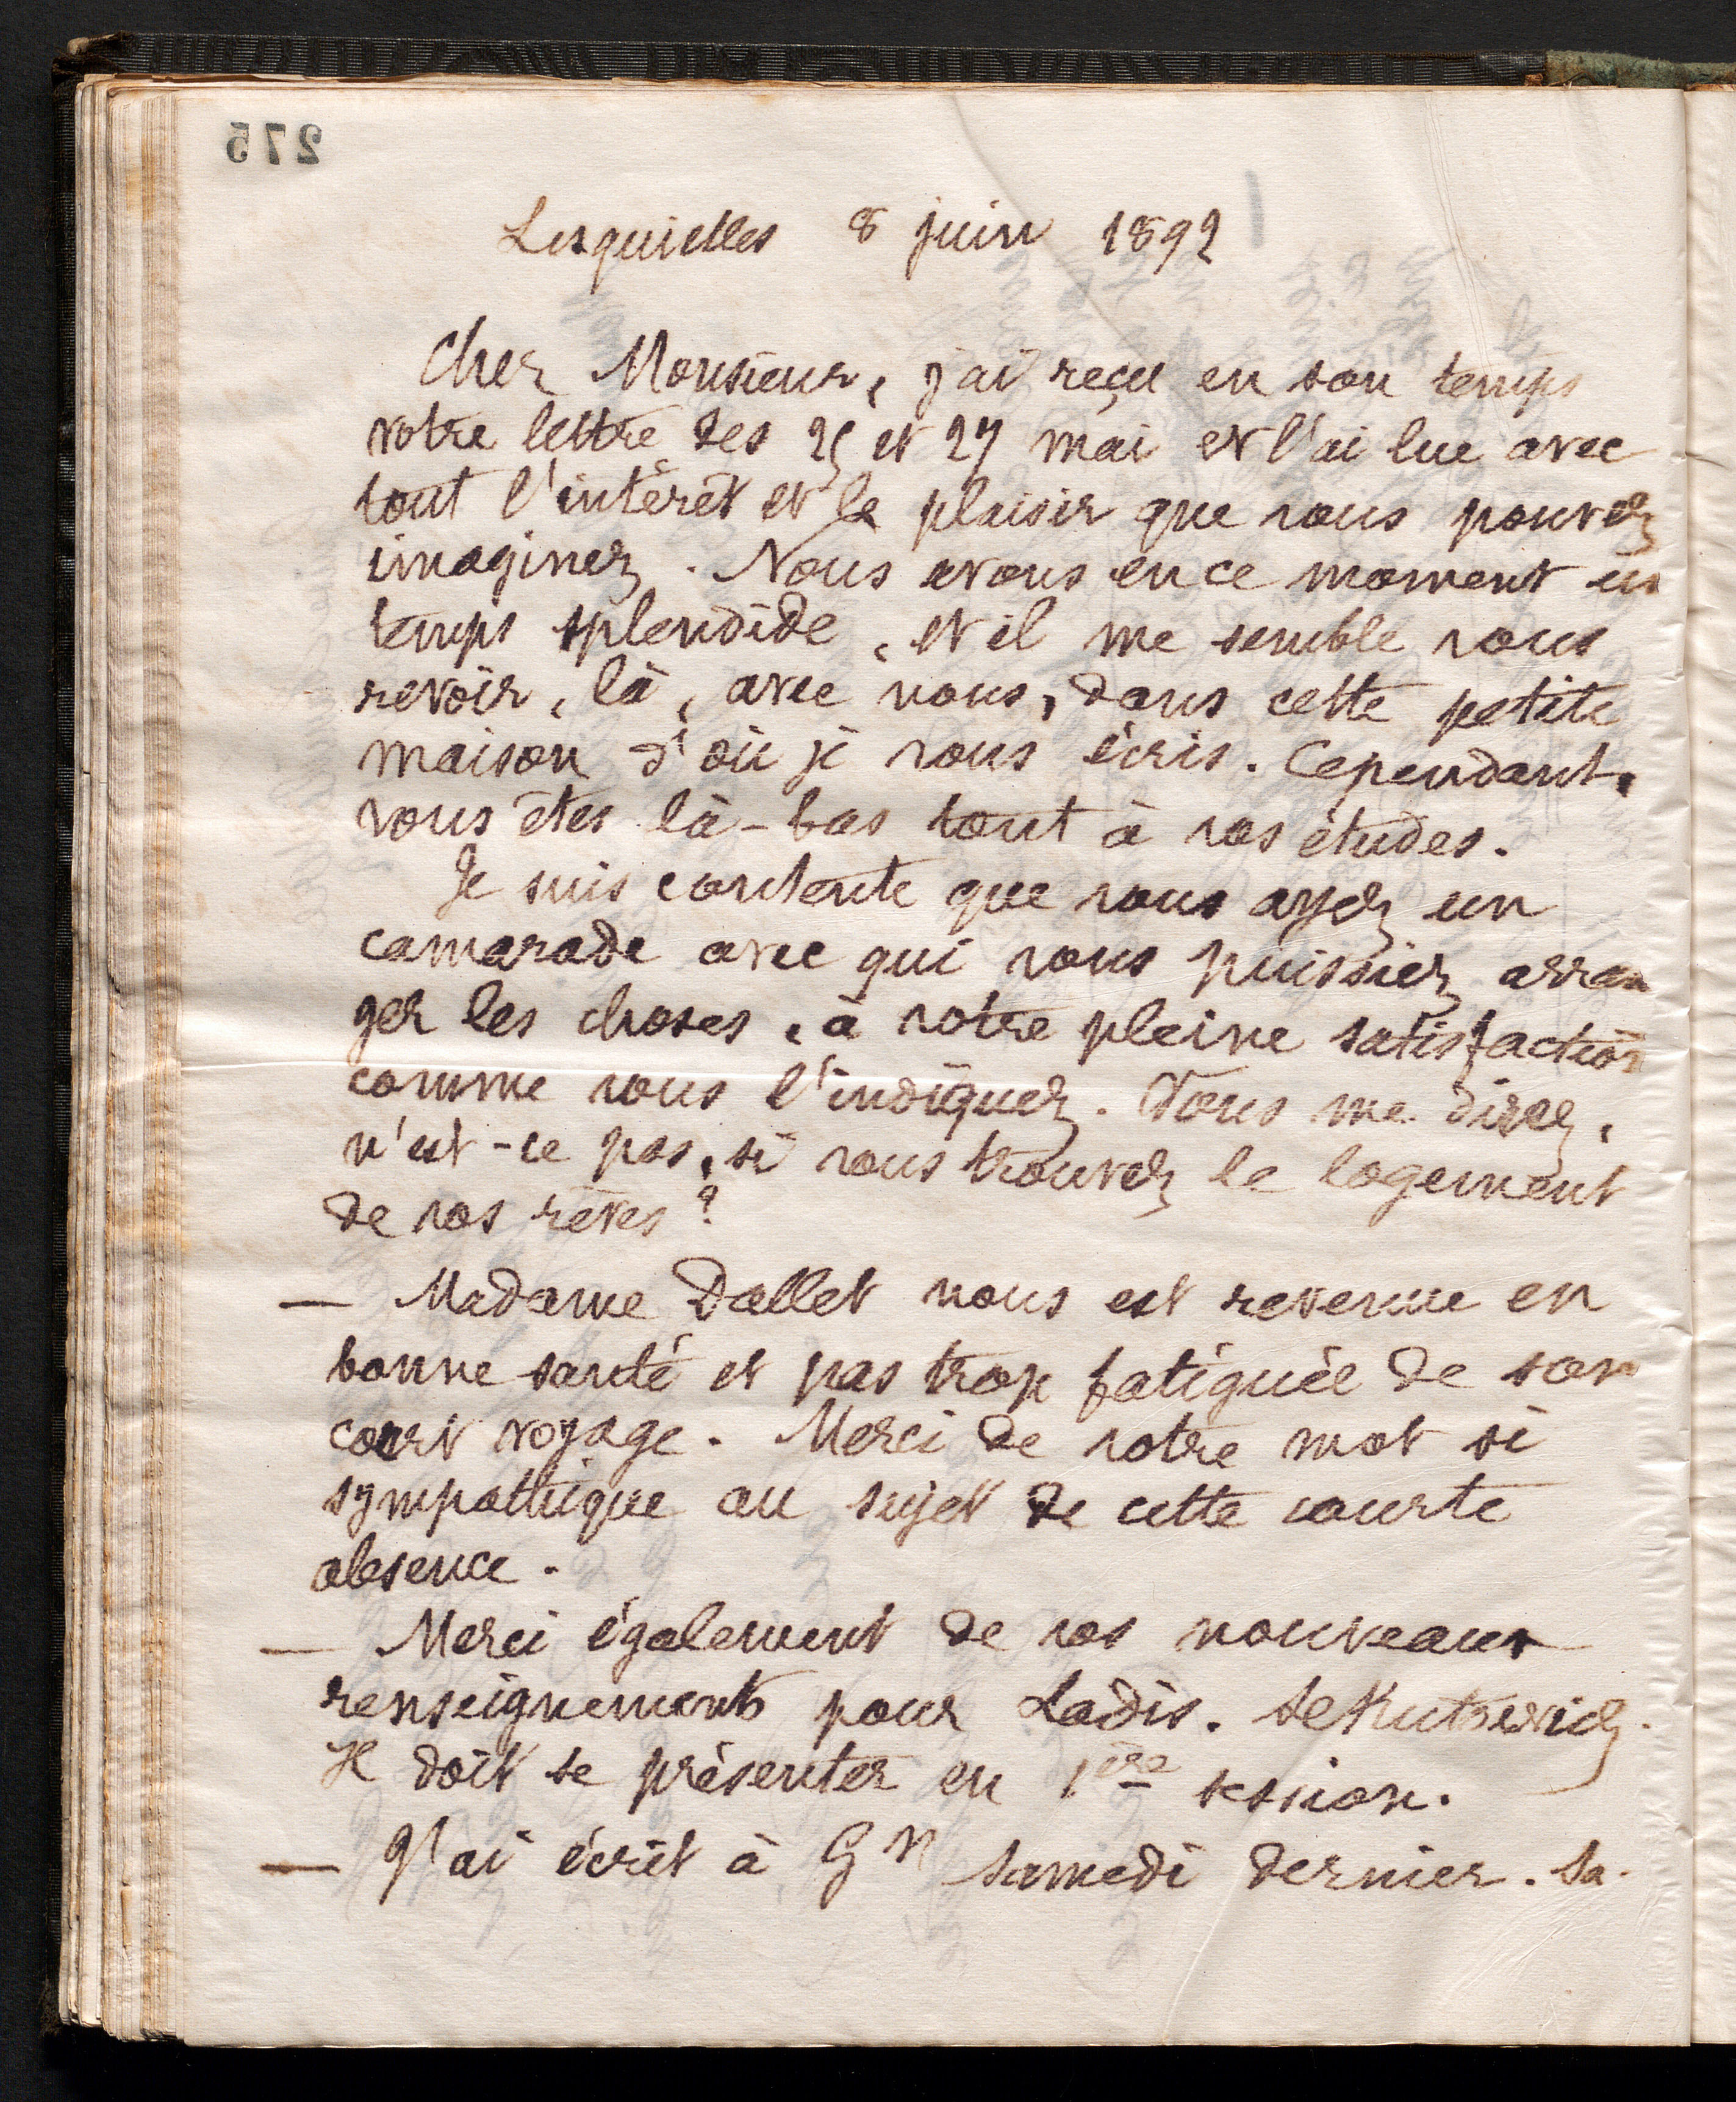 275
Lesquielles 8 juin 1892
Cher Monsieur, j'ai reçu en son temps
votre lettre des 25 et 27 mai et l'ai lue avec
tout l'intérêt et le plaisir que vous pouvez
imaginez. Nous avons en ce moment un
temps splendide, et il me semble vous
revoir, là, avec nous, dans cette petite
maison d'où je vous écris. Cependant,
vous êtes là-bas tout à vos études.
Je suis contente que vous ayez un
camarade avec qui vous puissiez arran
ger les choses, à votre pleine satisfaction
comme vous l'indiquez. Vous me direz,
n'est-ce pas, si vous trouvez le logement
de vos rêves?
— Madame Dallet nous est revenue en
bonne santé et pas trop fatiguée de son
court voyage. Merci de votre mot si
sympathique au sujet de cette courte
absence.
— Merci également de vos nouveaux
renseignements pour Ladis. Sekutowicz.
Il doit se présenter en 1ère session.
— J'ai écrit à Gn samedi dernier. Sa